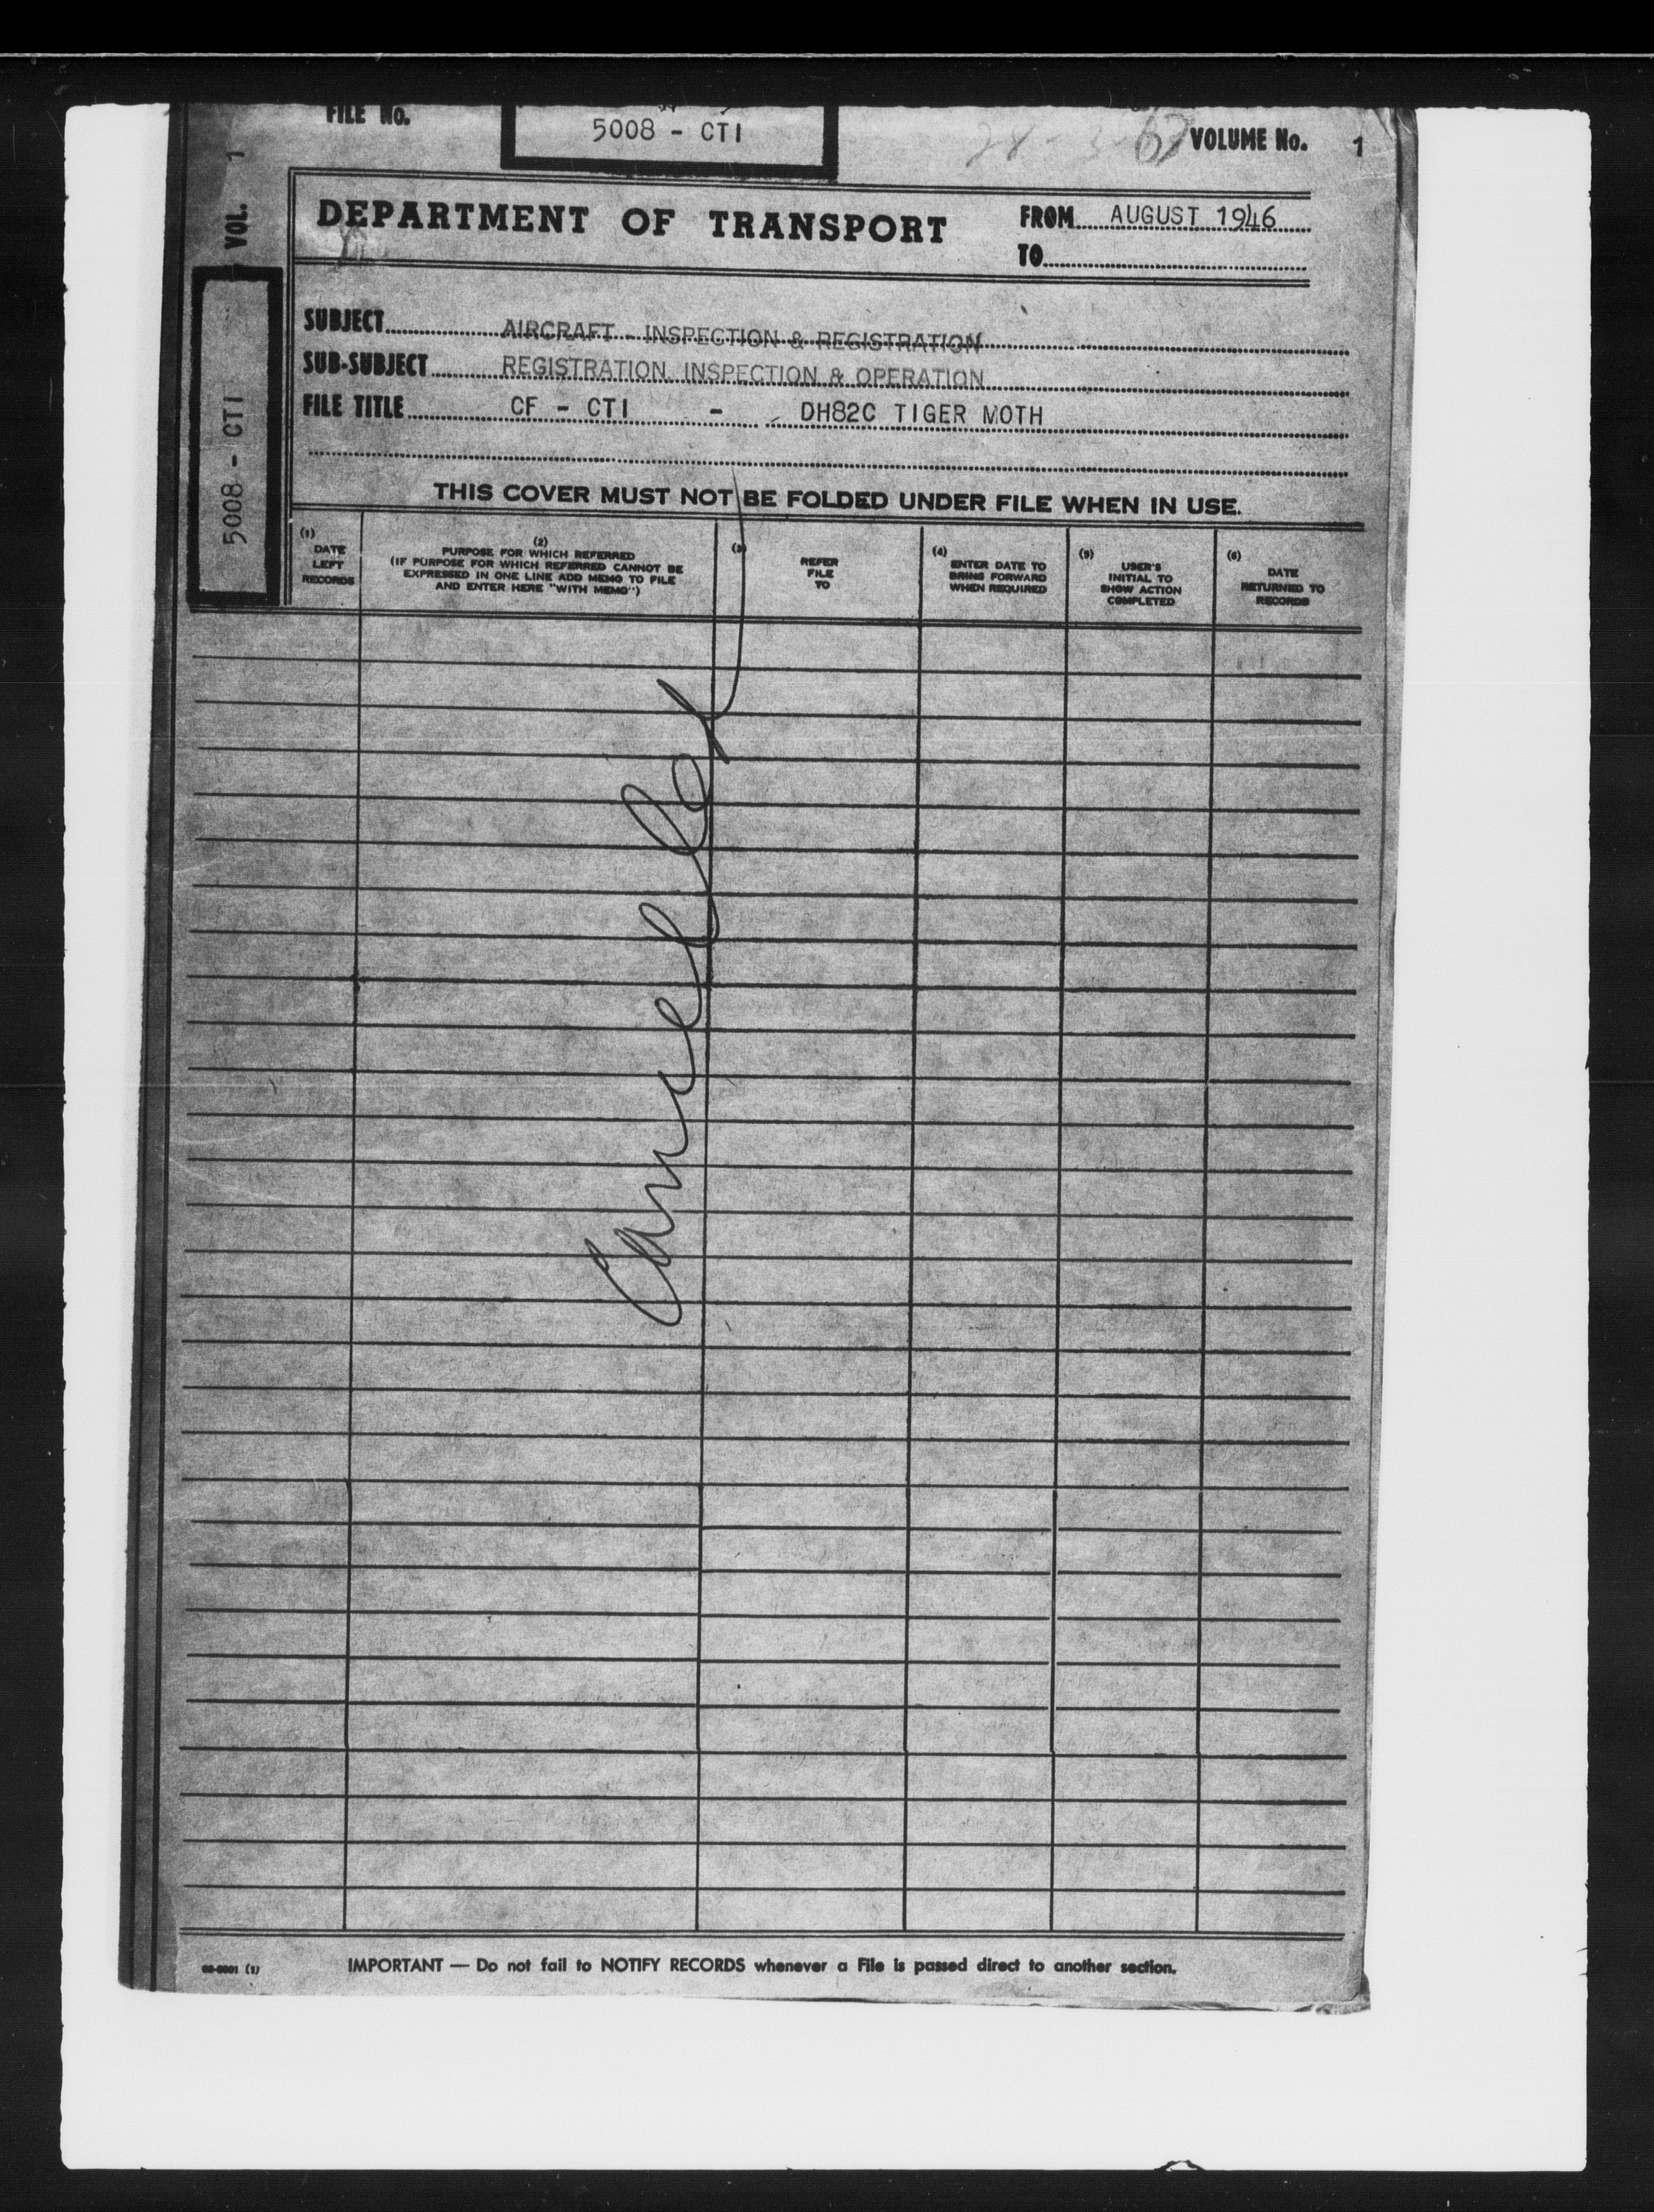 FILE No.
5008 - CTI
VOLUME No. 1
VOL. 1
DEPARTMENT OF TRANSPORT
FROM AUGUST 1946
TO
5008 - CTI
SUBJECT AIRCRAFT - INSPECTION & REGISTRATION
SUB-SUBJECT REGISTRATION, INSPECTION & OPERATION
FILE TITLE CF - CTI - DH82C TIGER MOTH
THIS COVER MUST NOT BE FOLDED UNDER FILE WHEN IN USE.
(1)
DATE
LEFT
RECORDS
(2)
PURPOSE FOR WHICH REFERRED
(IF PURPOSE FOR WHICH REFERRED CANNOT BE
EXPRESSED IN ONE LINE ADD MEMO TO FILE
AND ENTER HERE "WITH MEMO")
(3)
REFER
FILE
TO
(4)
ENTER DATE TO
BRING FORWARD
WHEN REQUIRED
(5)
USER'S
INITIAL TO
SHOW ACTION
COMPLETED
(6)
DATE
RETURNED TO
RECORDS
Cancelled
IMPORTANT — Do not fail to NOTIFY RECORDS whenever a File is passed direct to another section.